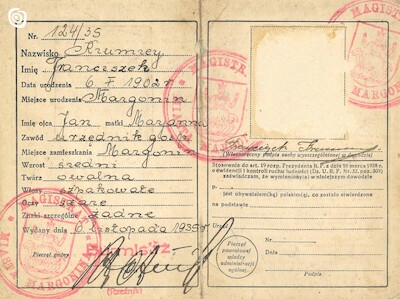 Nr. 124/35
Nazwisko Krumrey
Imię Franciszek
Data urodzenia 6. X. 1902 r
Miejsce urodzenia Margonin
Imię ojca Jan matki Marianna
Zawód urzędnik gosp.
Miejsce zamieszkania Margonin
Wzrost średni
Twarz owalna
Włosy szpakowate
Oczy szare
Znaki szczególne żadne
Wydany dnia 6 listopada 1935 r
Pieczęć gminy
Burmistrz
MAGISTRAT
MARGONIN
MAGISTR
MARGON
(Własnoręczny podpis osoby wyszczególnionej w dowodzie)
Stosownie do art. 19 rozp. Prezydenta R. P. z dn. 16 marca 1928 r.
o ewidencji i kontroli ruchu ludności (Dz. U. R. P. Nr. 32, poz. 309)
zaświadczam, że wymieniony(a) w niniejszym dowodzie
jest obywatelem(ką) polskim(ą), co zostało stwierdzone
na podstawie
Urząd
Nr.
dnia
Pieczęć
powiatowej
władzy
administracji
ogólnej.
Podpis